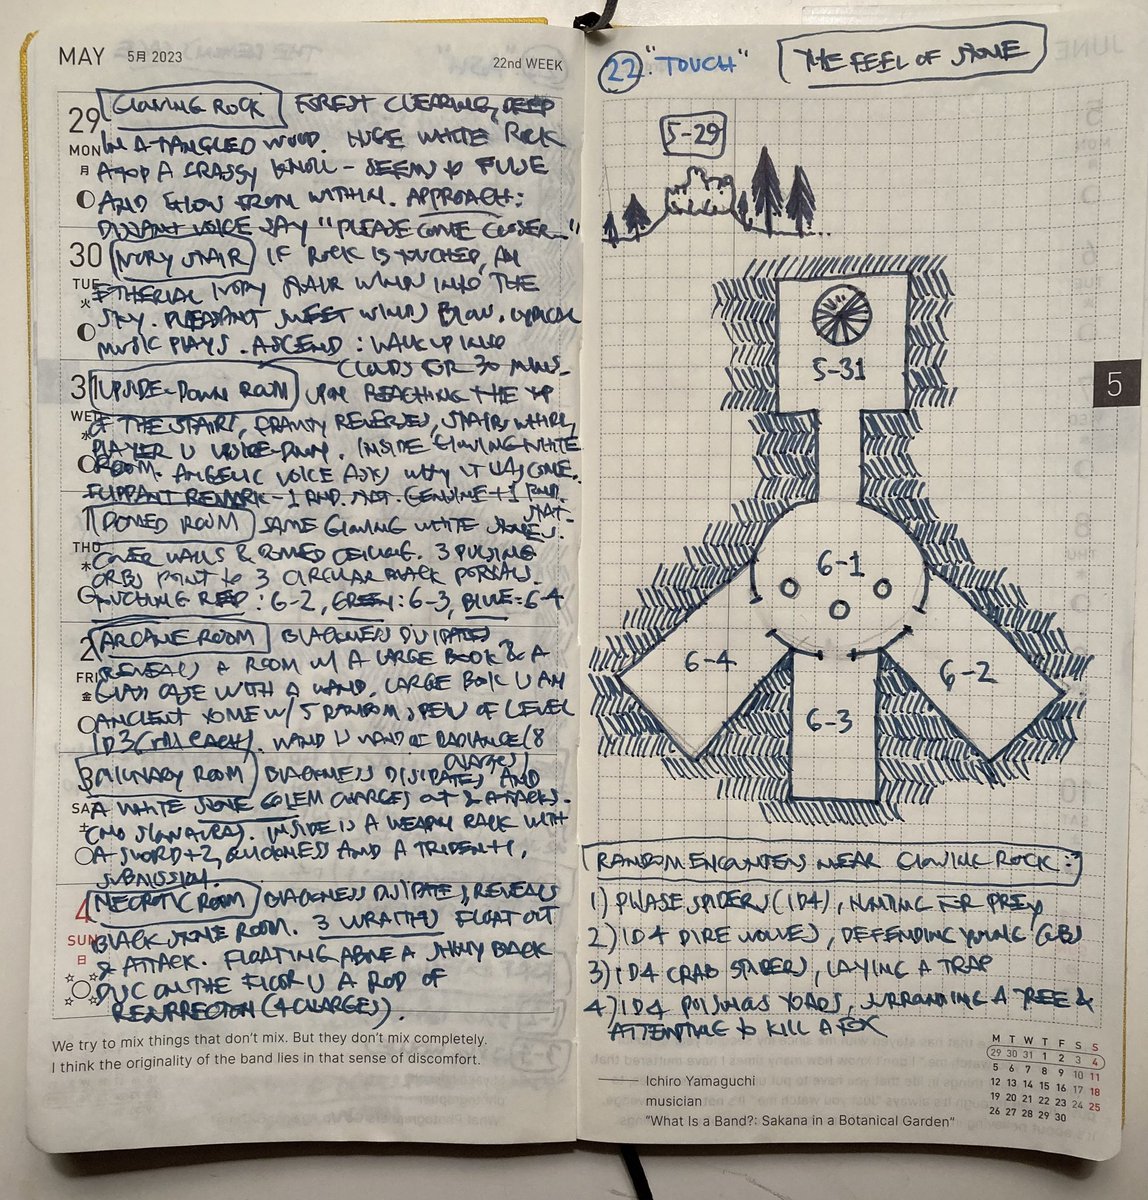 MAY 5月 2023 22nd WEEK
29 MON 月
GLOWING ROCK FOREST CLEARING, DEEP
IN A TANGLED WOOD. HUGE WHITE ROCK
ATOP A GRASSY KNOLL - SEEMS TO PULSE
AND GLOW FROM WITHIN. APPROACH:
DISTANT VOICE SAY "PLEASE COME CLOSER..."
30 TUE 火
IVORY STAIR IF ROCK IS TOUCHED, AN
ETHERIAL IVORY STAIR WINDS INTO THE
SKY. PLEASANT SWEET WINDS BLOW, LYRICAL
MUSIC PLAYS. ASCEND: WALK UP INTO
CLOUDS FOR 30 MINS.
31 WED 水
UPSIDE-DOWN ROOM UPON REACHING THE TOP
OF THE STAIRS, GRAVITY REVERSES, STAIRS WHIRL,
PLAYER IS UPSIDE-DOWN. INSIDE GLOWING WHITE
ROOM. ANGELIC VOICE ASKS WHY U HAS COME.
FLIPPANT REMARK -1 RND. STAT. GENUINE +1 RND.
STAT.
1 THU 木
DOMED ROOM SAME GLOWING WHITE STONES
COVER WALLS & DOMED CEILING. 3 PULSING
ORBS POINT TO 3 CIRCULAR BLACK PORTALS.
TOUCHING RED: 6-2, GREEN: 6-3, BLUE: 6-4
2 FRI 金
ARCANE ROOM BLACKNESS DISIPATES,
REVEALS A ROOM W/ A LARGE BOOK & A
GLASS CASE WITH A WAND. LARGE BOOK IS AN
ANCIENT TOME W/ 5 RANDOM SPELLS OF LEVEL
1D3 (ROLL EACH). WAND IS WAND OF RADIANCE (8
CHARGES)
3 SAT 土
MILITARY ROOM BLACKNESS DISIPATES, AND
A WHITE STONE GOLEM CHARGES OUT & ATTACKS.
(NO SLOW AURA). INSIDE IS A WEAPON RACK WITH
A SWORD +2, QUICKNESS AND A TRIDENT +1,
SUBMISSION.
4 SUN 日
NECROTIC ROOM BLACKNESS DISIPATES, REVEALS
BLACK STONE ROOM. 3 WRAITHS FLOAT OUT
& ATTACK. FLOATING ABOVE A SHINY BLACK
DISC ON THE FLOOR IS A ROD OF
RESURRECTION (4 CHARGES).
We try to mix things that don't mix. But they don't mix completely.
I think the originality of the band lies in that sense of discomfort.
22. "TOUCH" THE FEEL OF STONE
5-29
5
5-31
6-1
6-4
6-2
6-3
RANDOM ENCOUNTERS NEAR GLOWING ROCK:
1) PHASE SPIDERS (1D4), HUNTING FOR PREY
2) 1D4 DIRE WOLVES, DEFENDING YOUNG CUBS
3) 1D4 CRAB SPIDERS, LAYING A TRAP
4) 1D4 POISONOUS TOADS, SURROUNDING A TREE &
ATTEMPTING TO KILL A FOX
Ichiro Yamaguchi
musician
"What Is a Band?: Sakana in a Botanical Garden"
M T W T F S S
29 30 31 1 2 3 4
5 6 7 8 9 10 11
12 13 14 15 16 17 18
19 20 21 22 23 24 25
26 27 28 29 30